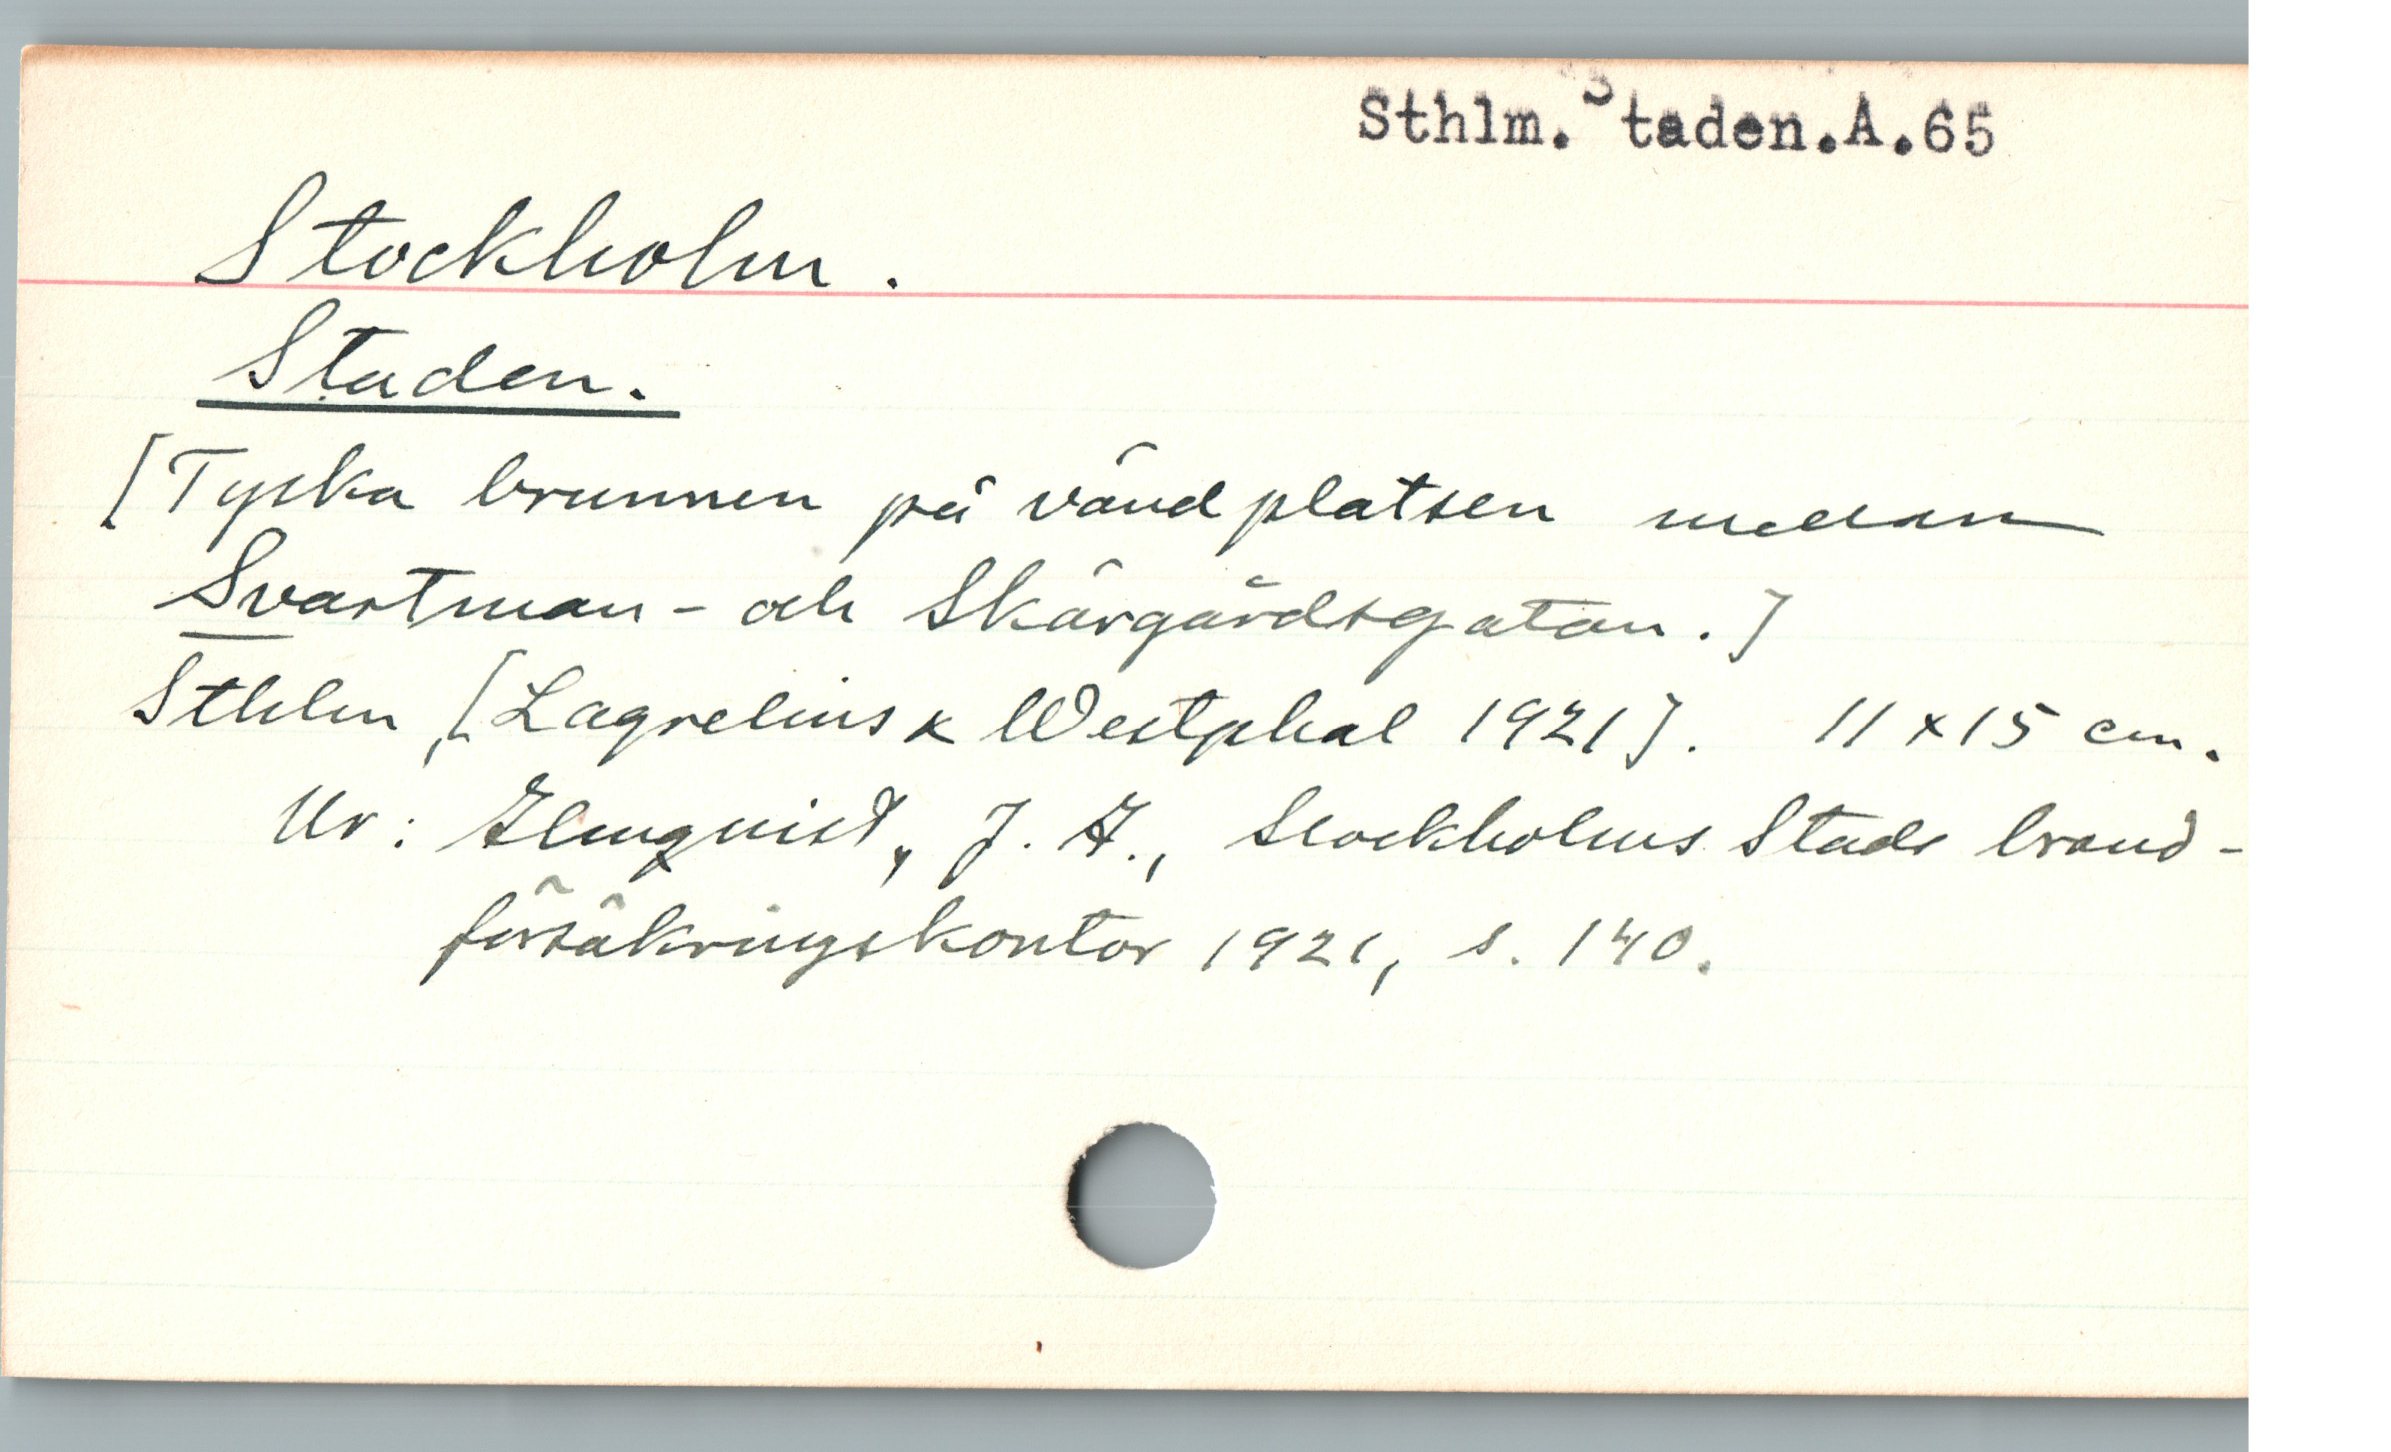 Sthlm. Staden.A.65
Stockholm.
Staden.
[Tyska brunnen på vändplatsen mellan
Svartman- och Skärgårdsgatan.]
Sthlm, [Lagrelius & Westphal 1921]. 11 x 15 cm.
Ur: Elmquist, J. A., Stockholms Stads brand-
försäkringskontor 1921, s. 140.